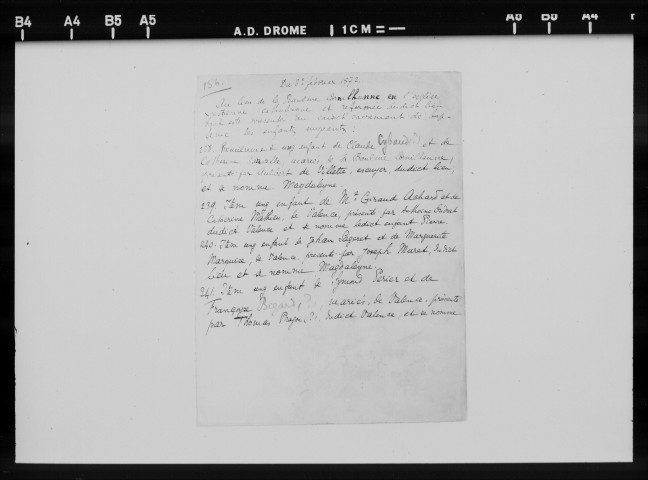 B4 A4 B5 A5 A.D. DROME 1 CM A4
156.
Du 3e février 1572.
Au lieu de la Baulme Cornilhanne en l'eglise
chrestienne et reformee dudict lieu
ont esté presentés au sainct sacrement de bap-
teme les enfants suyvants :
238. Premierement ung enfant de Claude et de
mariés, de la Baulme Cornilhanne,
presenté par de Villette, escuyer, dudict lieu,
et se nomme Magdaleyne.
239. Item ung enfant de Mr Giraud Achard et de
Catherine Mathieu, de Valence, présenté par Anthoine
dudict Valence et se nomme ledict enfant Pierre.
240. Item ung enfant de Jehan Pageret et de Marguerite
Marquise, de Valence, presenté par Joseph Murat, dudict
lieu et se nomme Magdaleyne.
241. Item ung enfant de Eymond Perier et de
Françoyse Begard (?), mariés, de Valence, présenté
par Thomas (?), dudict Valence, et se nomme